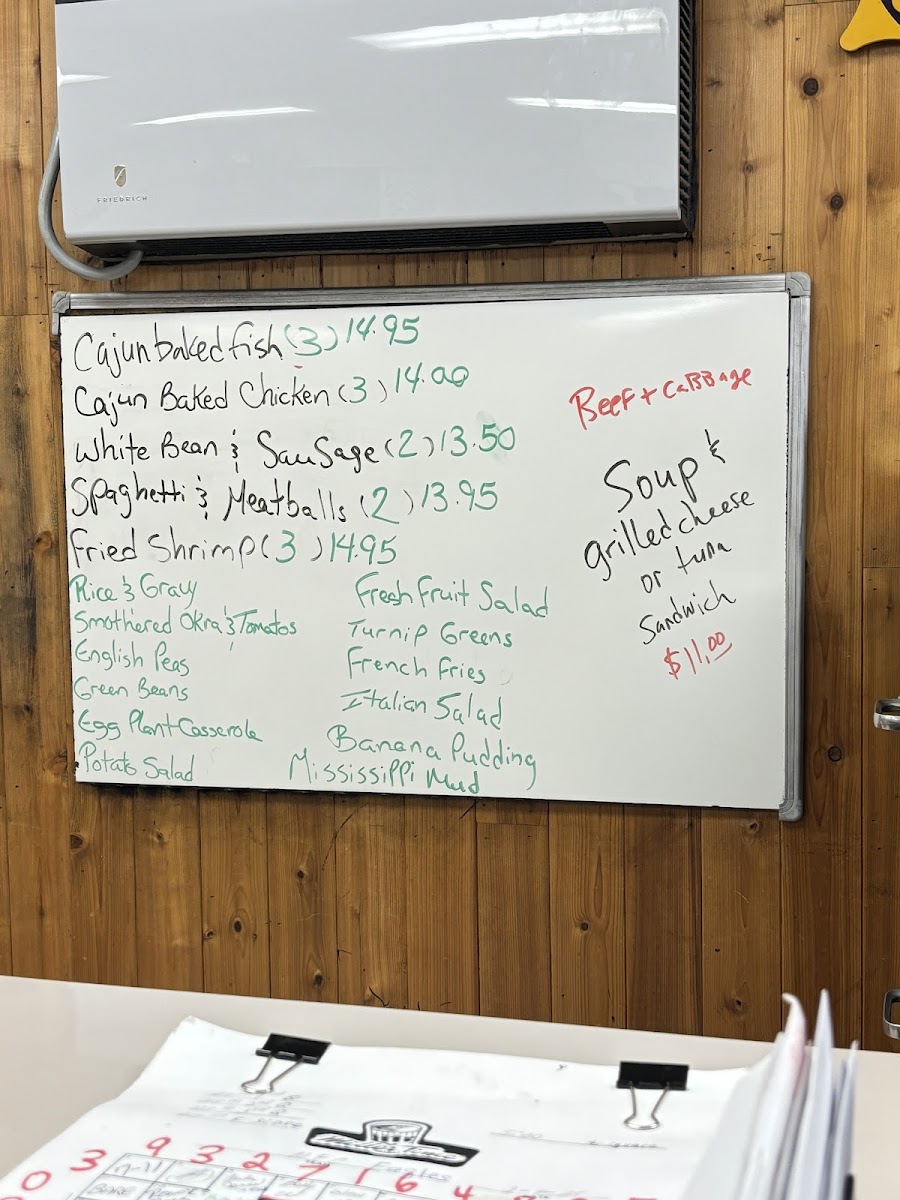 FRIEDRICH
Cajun baked fish (3) 14.95
Cajun Baked Chicken (3) 14.00
White Bean & Sausage (2) 13.50
Spaghetti & Meatballs (2) 13.95
Fried Shrimp (3) 14.95
Rice & Gravy
Smothered Okra & Tomatos
English Peas
Green Beans
Egg Plant Casserole
Potato Salad
Fresh Fruit Salad
Turnip Greens
French Fries
Italian Salad
Banana Pudding
Mississippi Mud
Beef + Cabbage
Soup &
grilled cheese
or tuna
Sandwich
$11.00
0 3 9 3 2 7 1 6 4